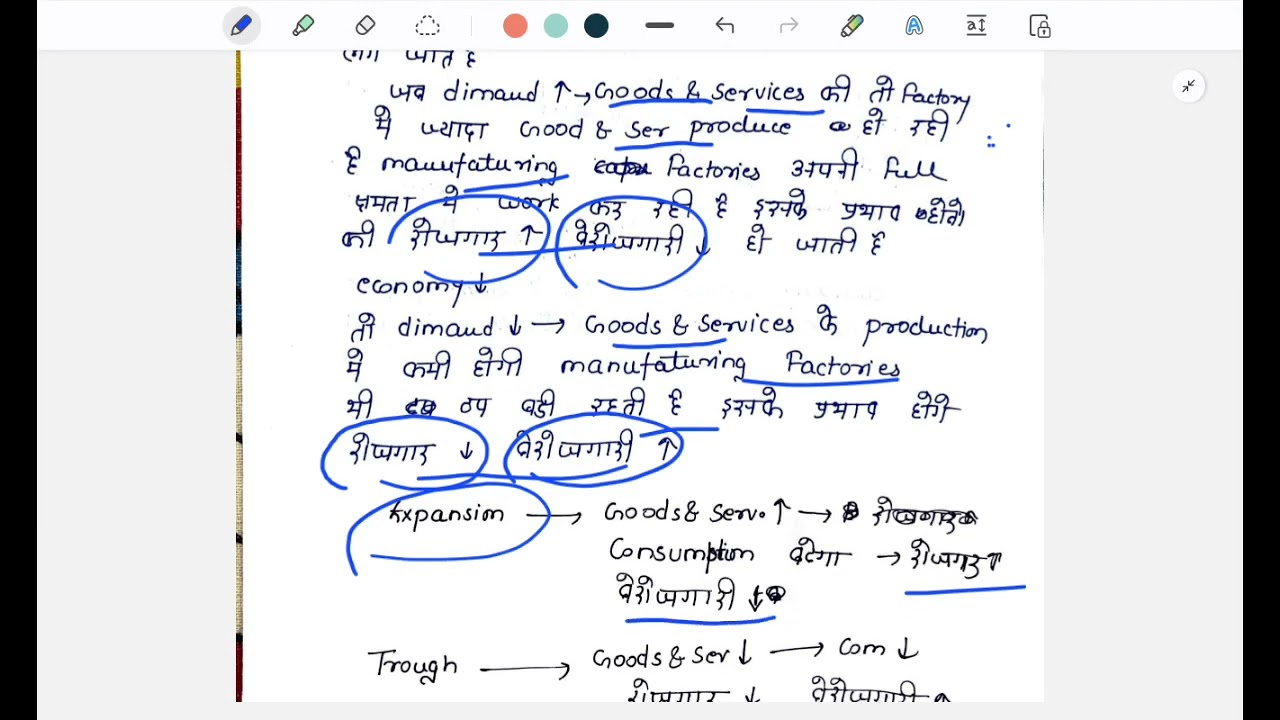 लग जाते है
जब dimaud ↑→Goods & Services की तो Factory
मे ज्यादा Good & Ser produce हो रही
है manufaturing Factories अपनी full
क्षमता मे work कर रही है इसके प्रभाव होते
की रोजगार ↑ बेरोजगारी ↓ हो जाती है
economy ↓
तो dimaud ↓ → Goods & Services के production
मे कमी होगी manufaturing Factories
भी ठप पडी रहती है इसके प्रभाव होगे
रोजगार ↓ बेरोजगारी ↑
Expansion → Goods & Serv. ↑ → रोजगार
Consumption बढेगा → रोजगार ↑
बेरोजगारी ↓
Trough → Goods & Ser ↓ → Com ↓
रोजगार ↓ बेरोजगारी ↑